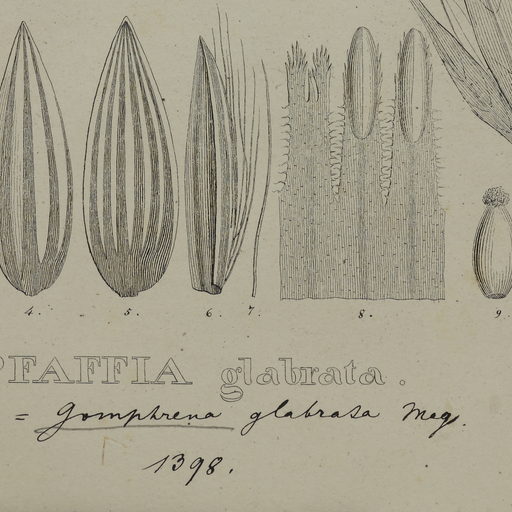 4. 5. 6. 7. 8. 9.
PFAFFIA glabrata.
= Gomphrena glabrata Moq.
1398.